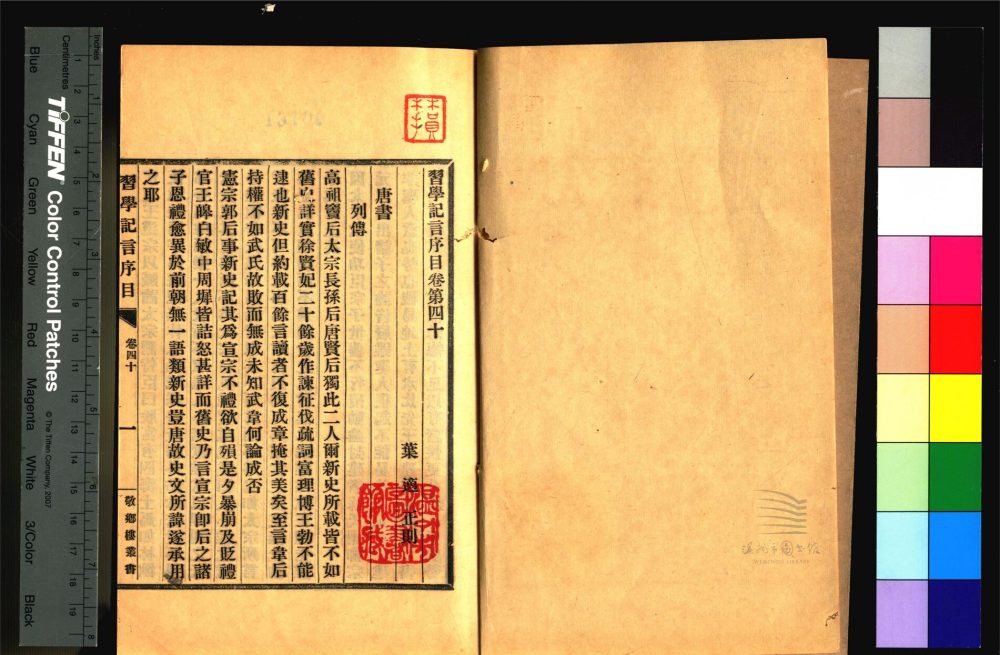 習學記言序目卷第四十
葉適 正則
唐書
列傳
高祖竇后太宗長孫后唐賢后獨此二人爾新史所載皆不如
舊史詳實徐賢妃二十餘歲作諫征伐疏詞富理博王勃不能
逮也新史但約載百餘言讀者不復成章掩其美矣至言韋后
持權不如武氏故敗而無成未知武韋何論成否
憲宗郭后事新史記其為宣宗不禮欲自殞是夕暴崩及貶禮
官王皞白敏中周墀皆詰怒甚詳而舊史乃言宣宗卽后之諸
子恩禮愈異於前朝無一語類新史豈唐故史文所諱遂承用
之耶
習學記言序目
卷四十
一
敬鄉樓叢書
溫州市圖書館
WENZHOU LIBRARY
Inches
Centimetres
TIFFEN® Color Control Patches
© The Tiffen Company, 2007
Blue Cyan Green Yellow Red Magenta White 3/Color Black
1 2 3 4 5 6 7 8
1 2 3 4 5 6 7 8 9 10 11 12 13 14 15 16 17 18 19